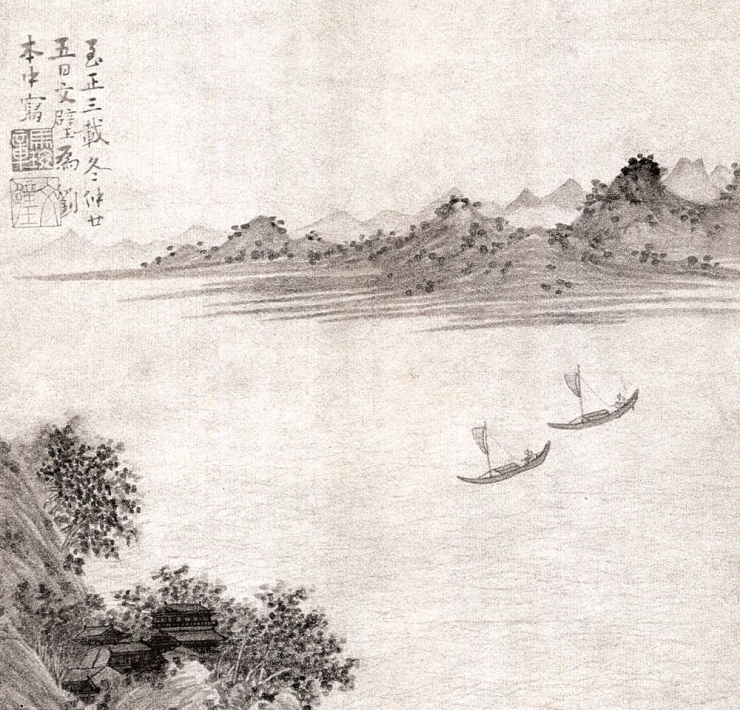 至正三載冬仲廿
五日文璧為劉
本中寫